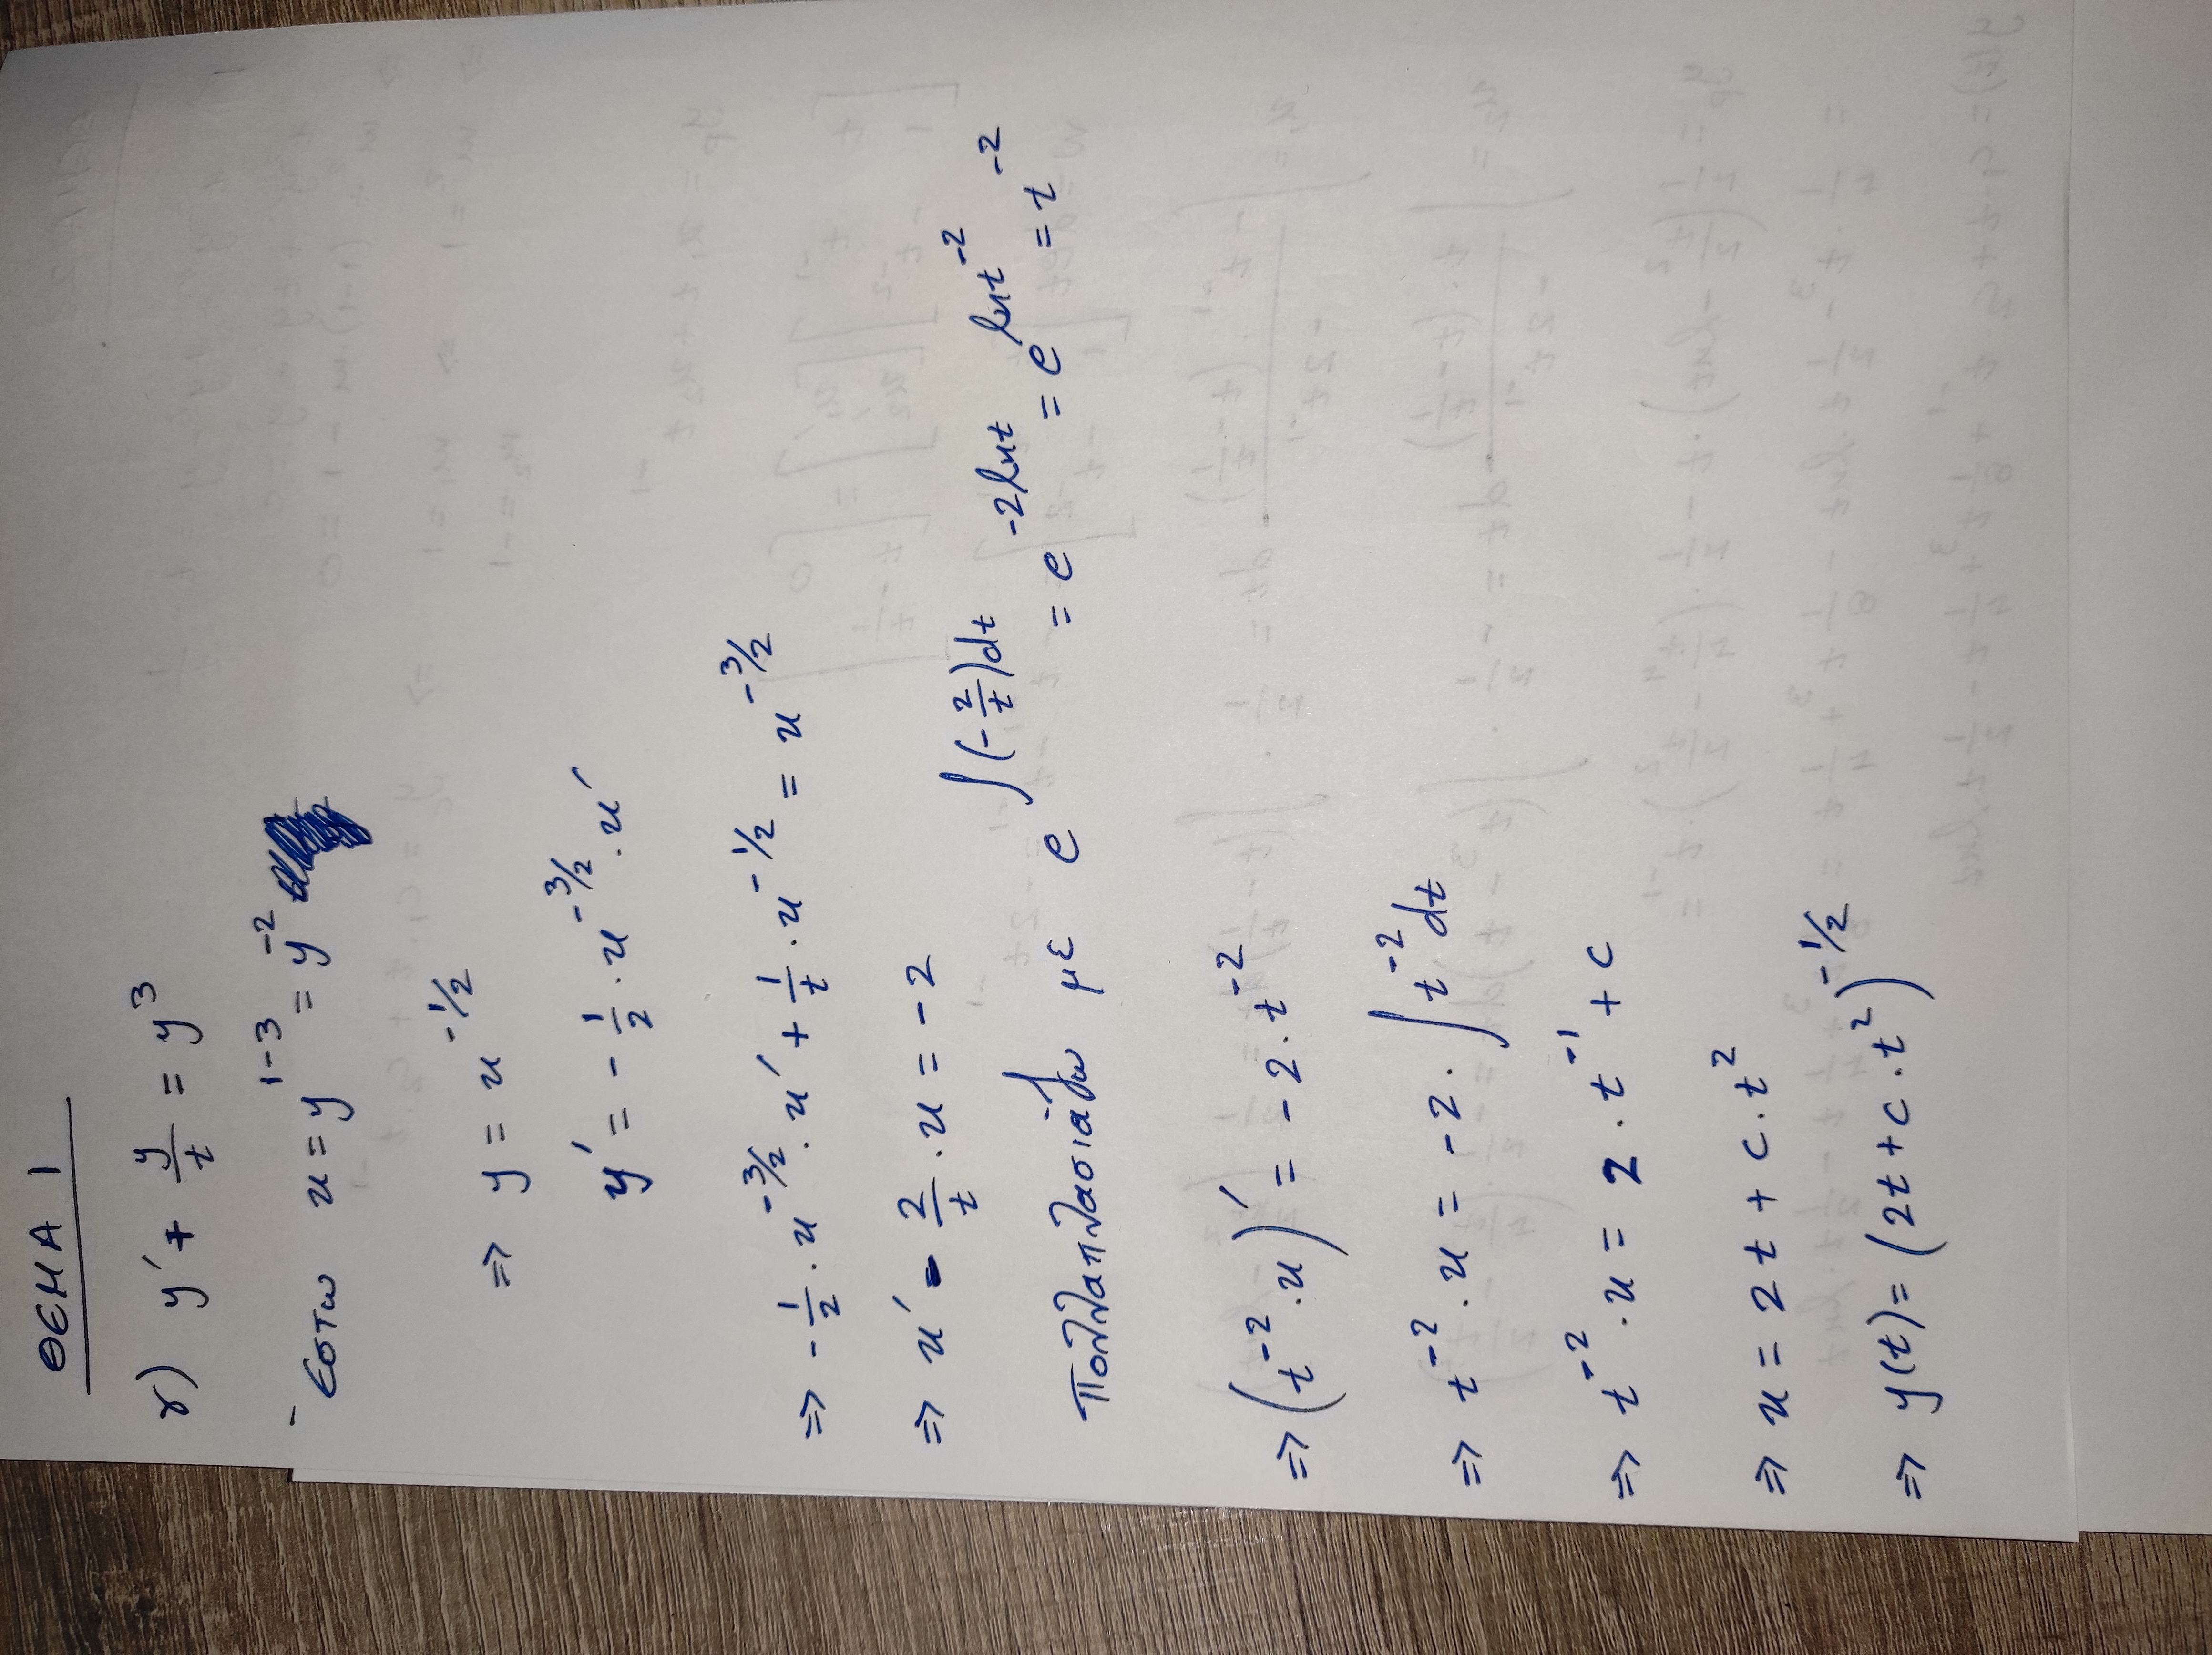 ΘΕΜΑ 1
γ) y' + y/t = y^3
Έστω u = y^{1-3} = y^{-2}
=> y = u^{-1/2}
y' = -1/2 · u^{-3/2} · u'
=> -1/2 · u^{-3/2} · u' + 1/t · u^{-1/2} = u^{-3/2}
=> u' - 2/t · u = -2
Πολλαπλασιάζω με e^{∫(-2/t)dt} = e^{-2lnt} = e^{lnt^{-2}} = t^{-2}
=> (t^{-2} · u)' = -2 · t^{-2}
=> t^{-2} · u = -2 · ∫t^{-2}dt
=> t^{-2} · u = 2 · t^{-1} + c
=> u = 2t + c · t^2
=> y(t) = (2t + c · t^2)^{-1/2}